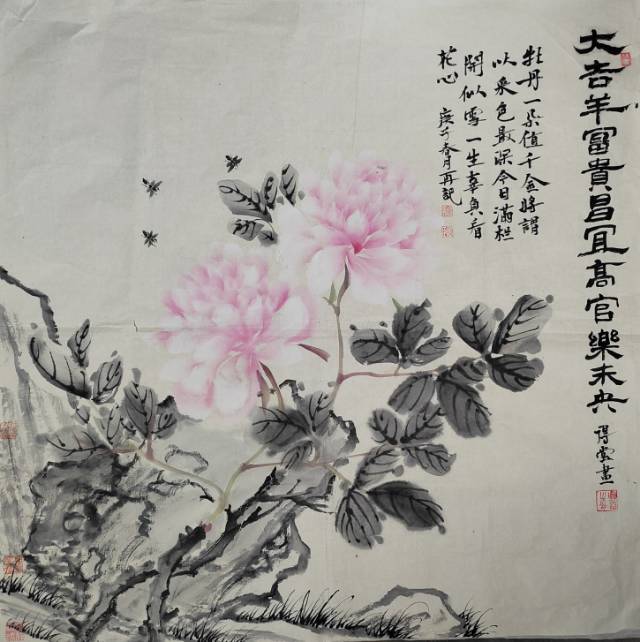 大吉羊富貴昌宜髙官樂未央
得雲畫
牡丹一朵值千金將謂
以來色最深今日滿栏
開似雪一生辜負看
花心
庚午春月再記